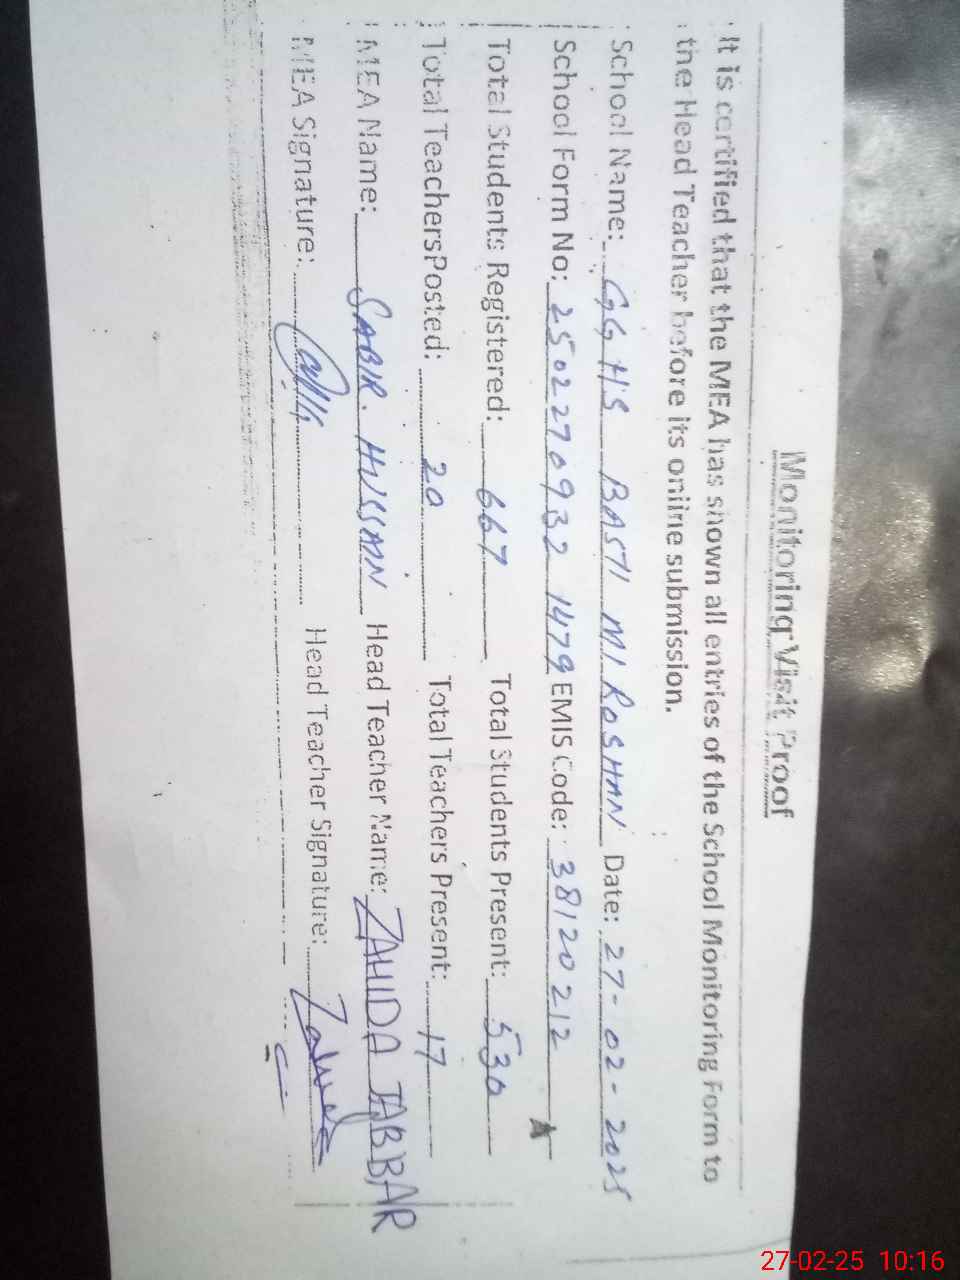 Monitoring Visit Proof
It is certified that the MEA has shown all entries of the School Monitoring Form to
the Head Teacher before its online submission.
School Name: GGHS BASTI MI ROSHAN Date: 27-02-2025
School Form No: 2502270932 1479 EMIS Code: 38120212
Total Students Registered: 667 Total Students Present: 530
Total TeachersPosted: 20 Total Teachers Present: 17
MEA Name: SABIR. HUSSAIN Head Teacher Name: ZAHIDA JABBAR
MEA Signature: Head Teacher Signature: Zahida
27-02-25 10:16